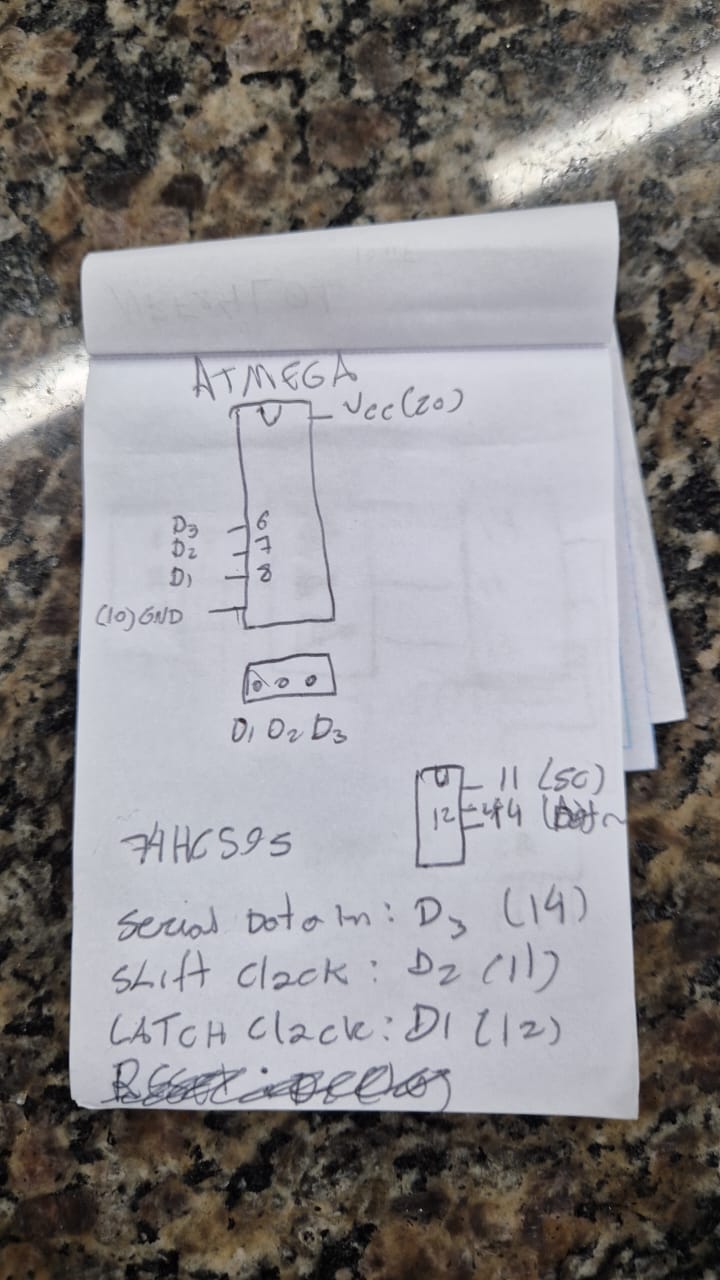 ATMEGA
Vcc (20)
D3 6
D2 7
D1 8
(10) GND
D1 D2 D3
11 (SC)
12
74HC595
Serial Data In: D3 (14)
Shift Clock: D2 (11)
LATCH Clock: D1 (12)